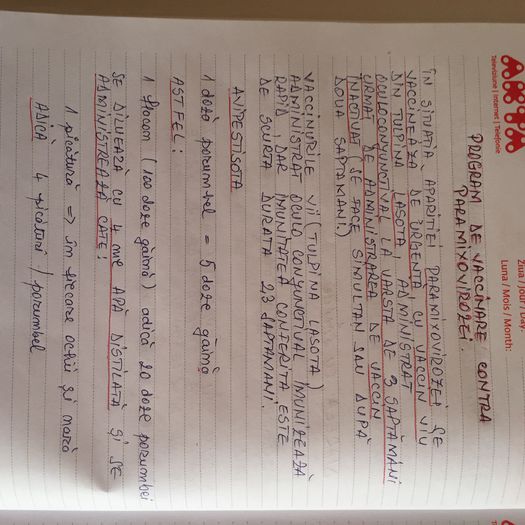 AKTA
Televisiune | Internet | Telefonie
Ziua / Jour / Day:
Luna / Mois / Month:
PROGRAM DE VACCINARE CONTRA
PARAMIXOVIROZEI.
IN SITUATIA APARITIEI PARAMIXOVIROZEI SE
VACCINEAZA DE URGENTA CU VACCIN VIU
DIN TULPINA LASOTA, ADMINISTRAT
OCULOCONYUNCTIVAL LA VARSTA DE 3 SAPTAMANI
URMAT DE ADMINISTRAREA DE VACCIN
INACTIVAT (SE FACE SIMULTAN SAU DUPĂ
DOUA SAPTAMANI)
VACCINURILE VII (TULPINA LASOTA)
ADMINISTRAT OCULO CONYUNCTIVAL IMUNIZEAZĂ
RAPID DAR IMUNITATEA CONFERITA ESTE
DE SCURTA DURATA 2,3 SAPTAMANI.
AVIPESTISOTA
1 doză porumbel = 5 doze găină
ASTFEL:
1 flacon (100 doze găină) adică 20 doze porumbei
SE DILUEAZĂ CU 4 ml APĂ DISTILATĂ ȘI SE
ADMINISTREAZĂ CÂTE:
1 picătură => în fiecare ochi și nară
ADICĂ 4 picături / porumbel